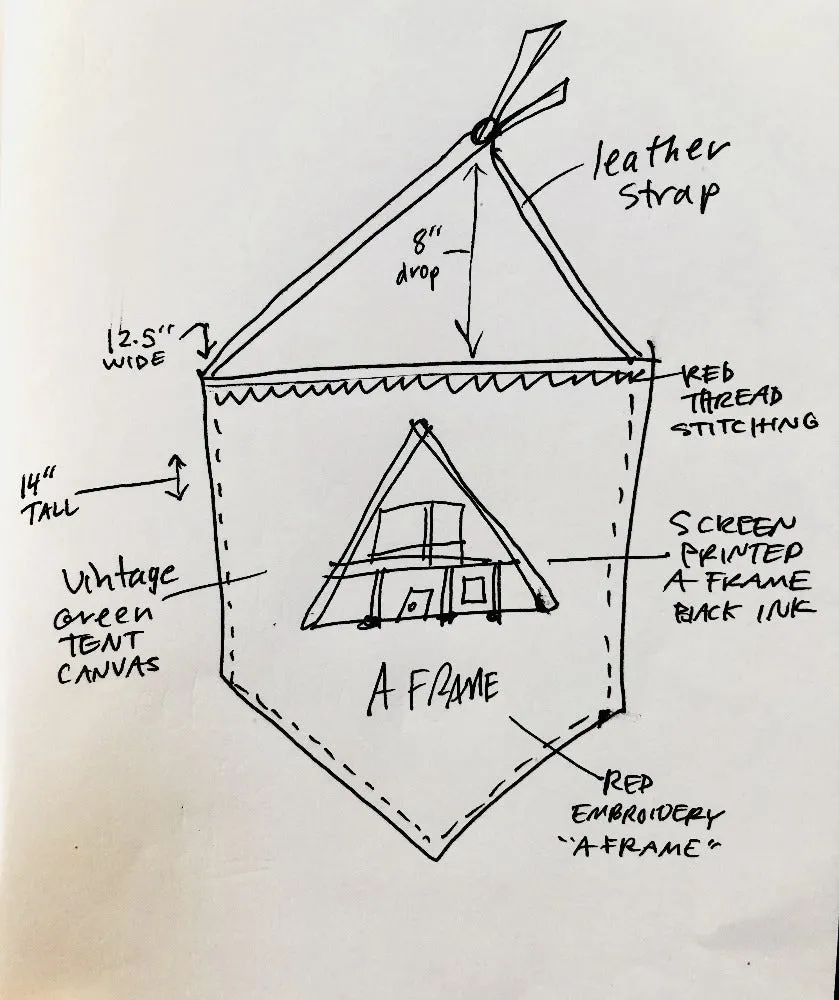 leather
strap
8"
drop
12.5"
WIDE
RED
THREAD
STITCHING
14"
TALL
SCREEN
PRINTED
A FRAME
BLACK INK
Vintage
Green
TENT
CANVAS
A FRAME
RED
EMBROIDERY
"A FRAME"